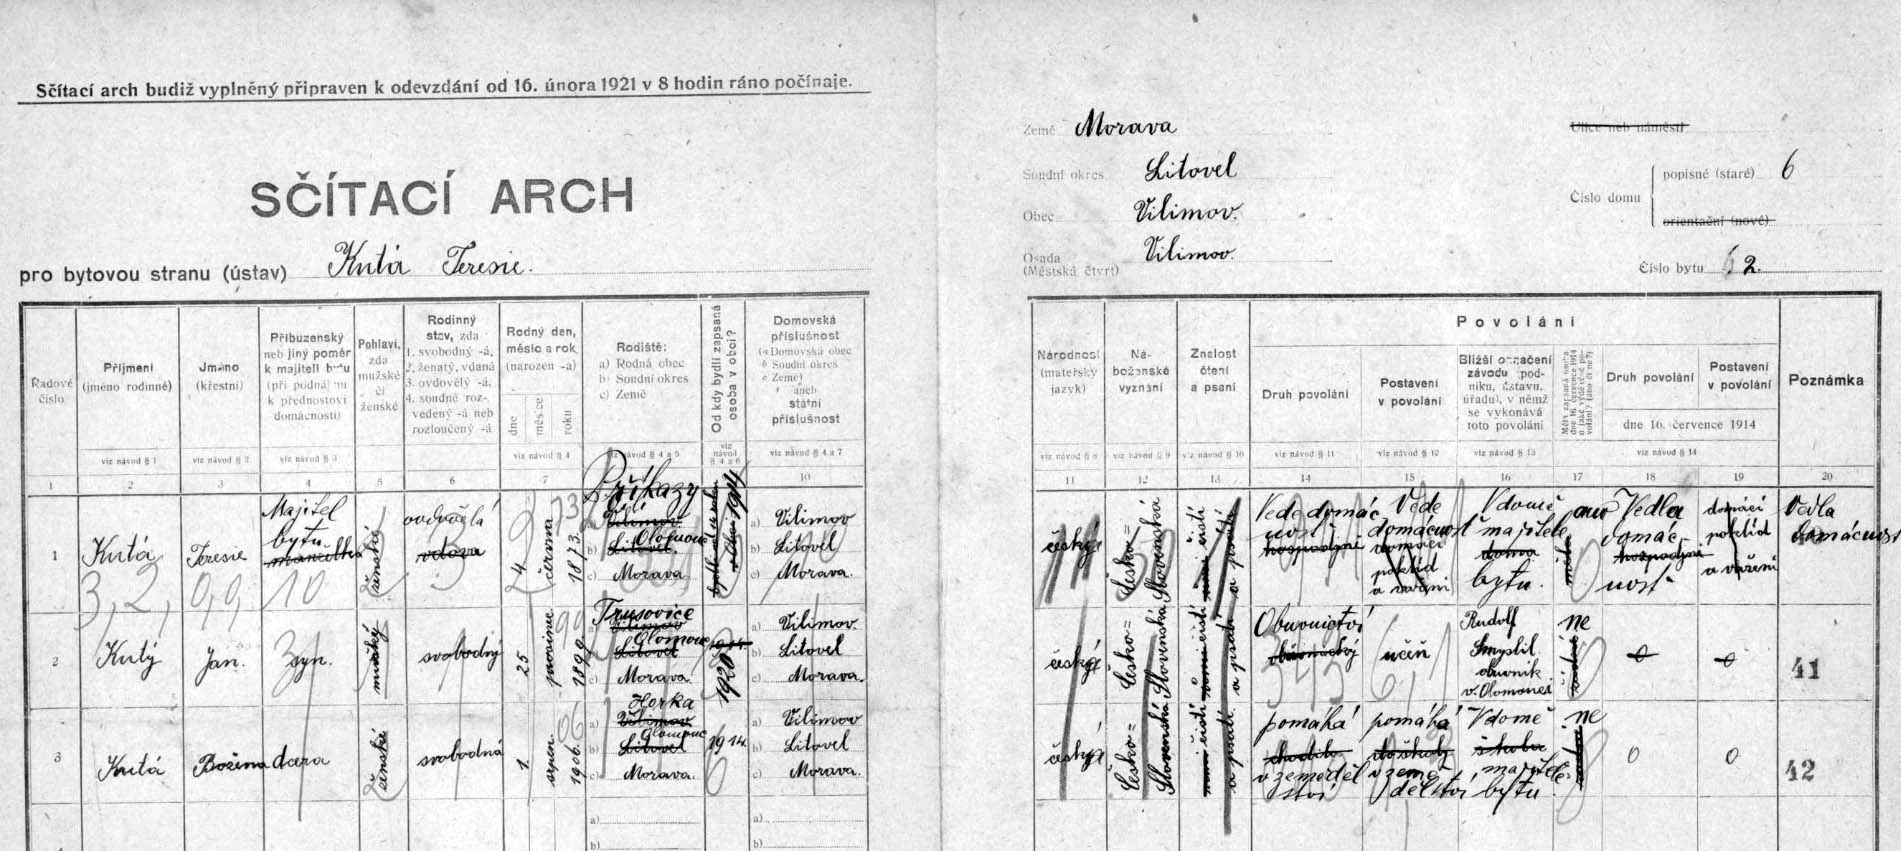 Sčítací arch budiž vyplněný připraven k odevzdání od 16. února 1921 v 8 hodin ráno počínaje.
SČÍTACÍ ARCH
pro bytovou stranu (ústav) Kutá Teresie.
Země Morava
Soudní okres Litovel
Obec Vilimov.
Osada (Městská čtvrt) Vilimov.
Ulice neb náměstí
Číslo domu
popisné (staré) 6
orientační (nové)
Číslo bytu 2.
Radové číslo
Příjmení (jméno rodinné)
Jméno (křestní)
Příbuzenský neb jiný poměr k majiteli bytu (při podnájmu k přednostovi domácnosti)
Pohlaví, zda mužské či ženské
Rodinný stav, zda
1. svobodný -á,
2. ženatý, vdaná
3. ovdovělý -á,
4. soudně rozvedený -á neb rozloučený -á
Rodný den, měsíc a rok (narozen -a)
dne
měsíce
roku
Rodiště:
a) Rodná obec
b) Soudní okres
c) Země
Od kdy bydlí zapsaná osoba v obci?
Domovská příslušnost
(a Domovská obec
b Soudní okres
c Země)
aneb
státní příslušnost
viz návod § 1
viz návod § 2
viz návod § 3
viz návod § 4
viz návod § 4 a 5
viz návod § 4 a 6
viz návod § 4 a 7
1 2 3 4 5 6 7 10
Národnost (mateřský jazyk)
Náboženské vyznání
Znalost čtení a psaní
Povolání
Druh povolání
Postavení v povolání
Bližší označení závodu (podniku, ústavu, úřadu), v němž se vykonává toto povolání
Druh povolání
Postavení v povolání
dne 16. července 1914
Poznámka
viz návod § 8
viz návod § 9
viz návod § 10
viz návod § 11
viz návod § 12
viz návod § 13
viz návod § 14
11 12 13 14 15 16 17 18 19 20
1 Kutá Teresie Majitel bytu ženská ovdovělá vdova 24 června 1873
Příkazy
a) Vilimov
b) Litovel Olomouc
c) Morava
1914
a) Vilimov
b) Litovel
c) Morava.
česká Česko=Slovenská umí čísti a psáti
Vede domácnost hospodyně
Vede domácnost domácí pořád a vaření
V domě majitele doma bytu.
ano Vedla domácnost hospodyně
domácí pořád a vaření
Vedla domácnost
3, 2, 0, 0, 10
2 Kutý Jan. syn. mužský svobodný 25 prosince 1899
Trusovice
a) Vilimov
b) Litovel Olomouc
c) Morava
1914 1920
a) Vilimov.
b) Litovel
c) Morava.
český Česko=Slovenská umí čísti a psáti
Obuvnictví učeň
Rudolf Smyslil obuvník v. Olomouci
ne 0 0 41
3 Kutá Božena dcera ženská svobodná 1 srpen. 1906.
Horka
a) Vilimov
b) Litovel Olomouc
c) Morava.
1914.
a) Vilimov
b) Litovel
c) Morava.
česká Česko=Slovenská umí čísti a psáti
pomáhá v zemědělství
pomáhá v zemědělství
V domě majitele bytu
ne 0 0 42
a)
b)
a)
b)